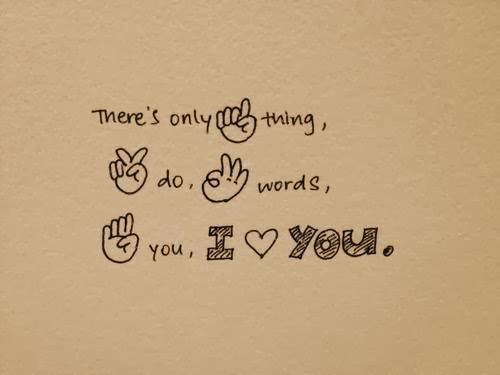 There's only thing,
do, words,
you, I ♡ you.